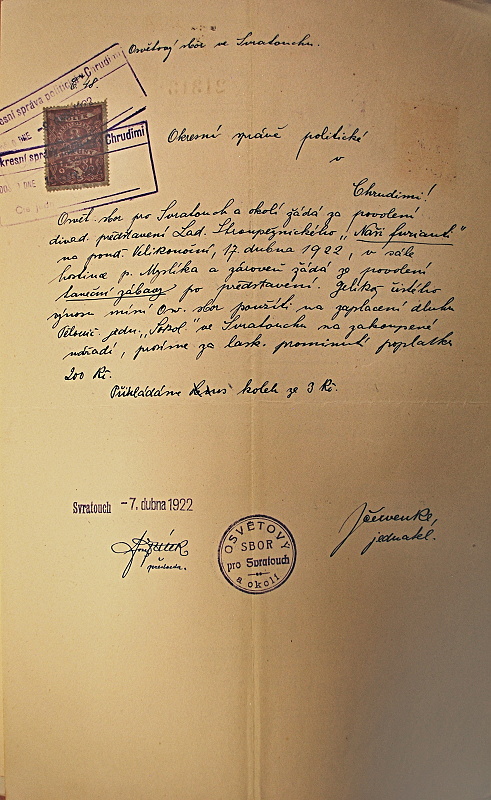 Osvětový sbor ve Svratouchu.
Okresní správa politická v Chrudimi
Okresní správa Chrudimi
DNE
Okresní správě politické
v
Chrudimi!
Osvět. sbor pro Svratouch a okolí žádá za povolení
divad. představení Lad. Stroupežnického „Naši furianti“
na pond. Velikonoční, 17. dubna 1922, v sále
hostince p. Myslíka a zároveň žádá za povolení
taneční zábavy po představení. Jelikož čistého
výnosu míní Osv. sbor použíti na zaplacení dluhu
Tělocvič. jedn. „Sokol“ ve Svratouchu na zakoupené
nářadí, prosíme za lask. prominutí poplatku
200 Kč.
Přikládáme kolek ze 3 Kč.
Svratouch -7. dubna 1922
předseda.
OSVĚTOVÝ
SBOR
pro Svratouch
a okolí
J Červenka,
jednatel.